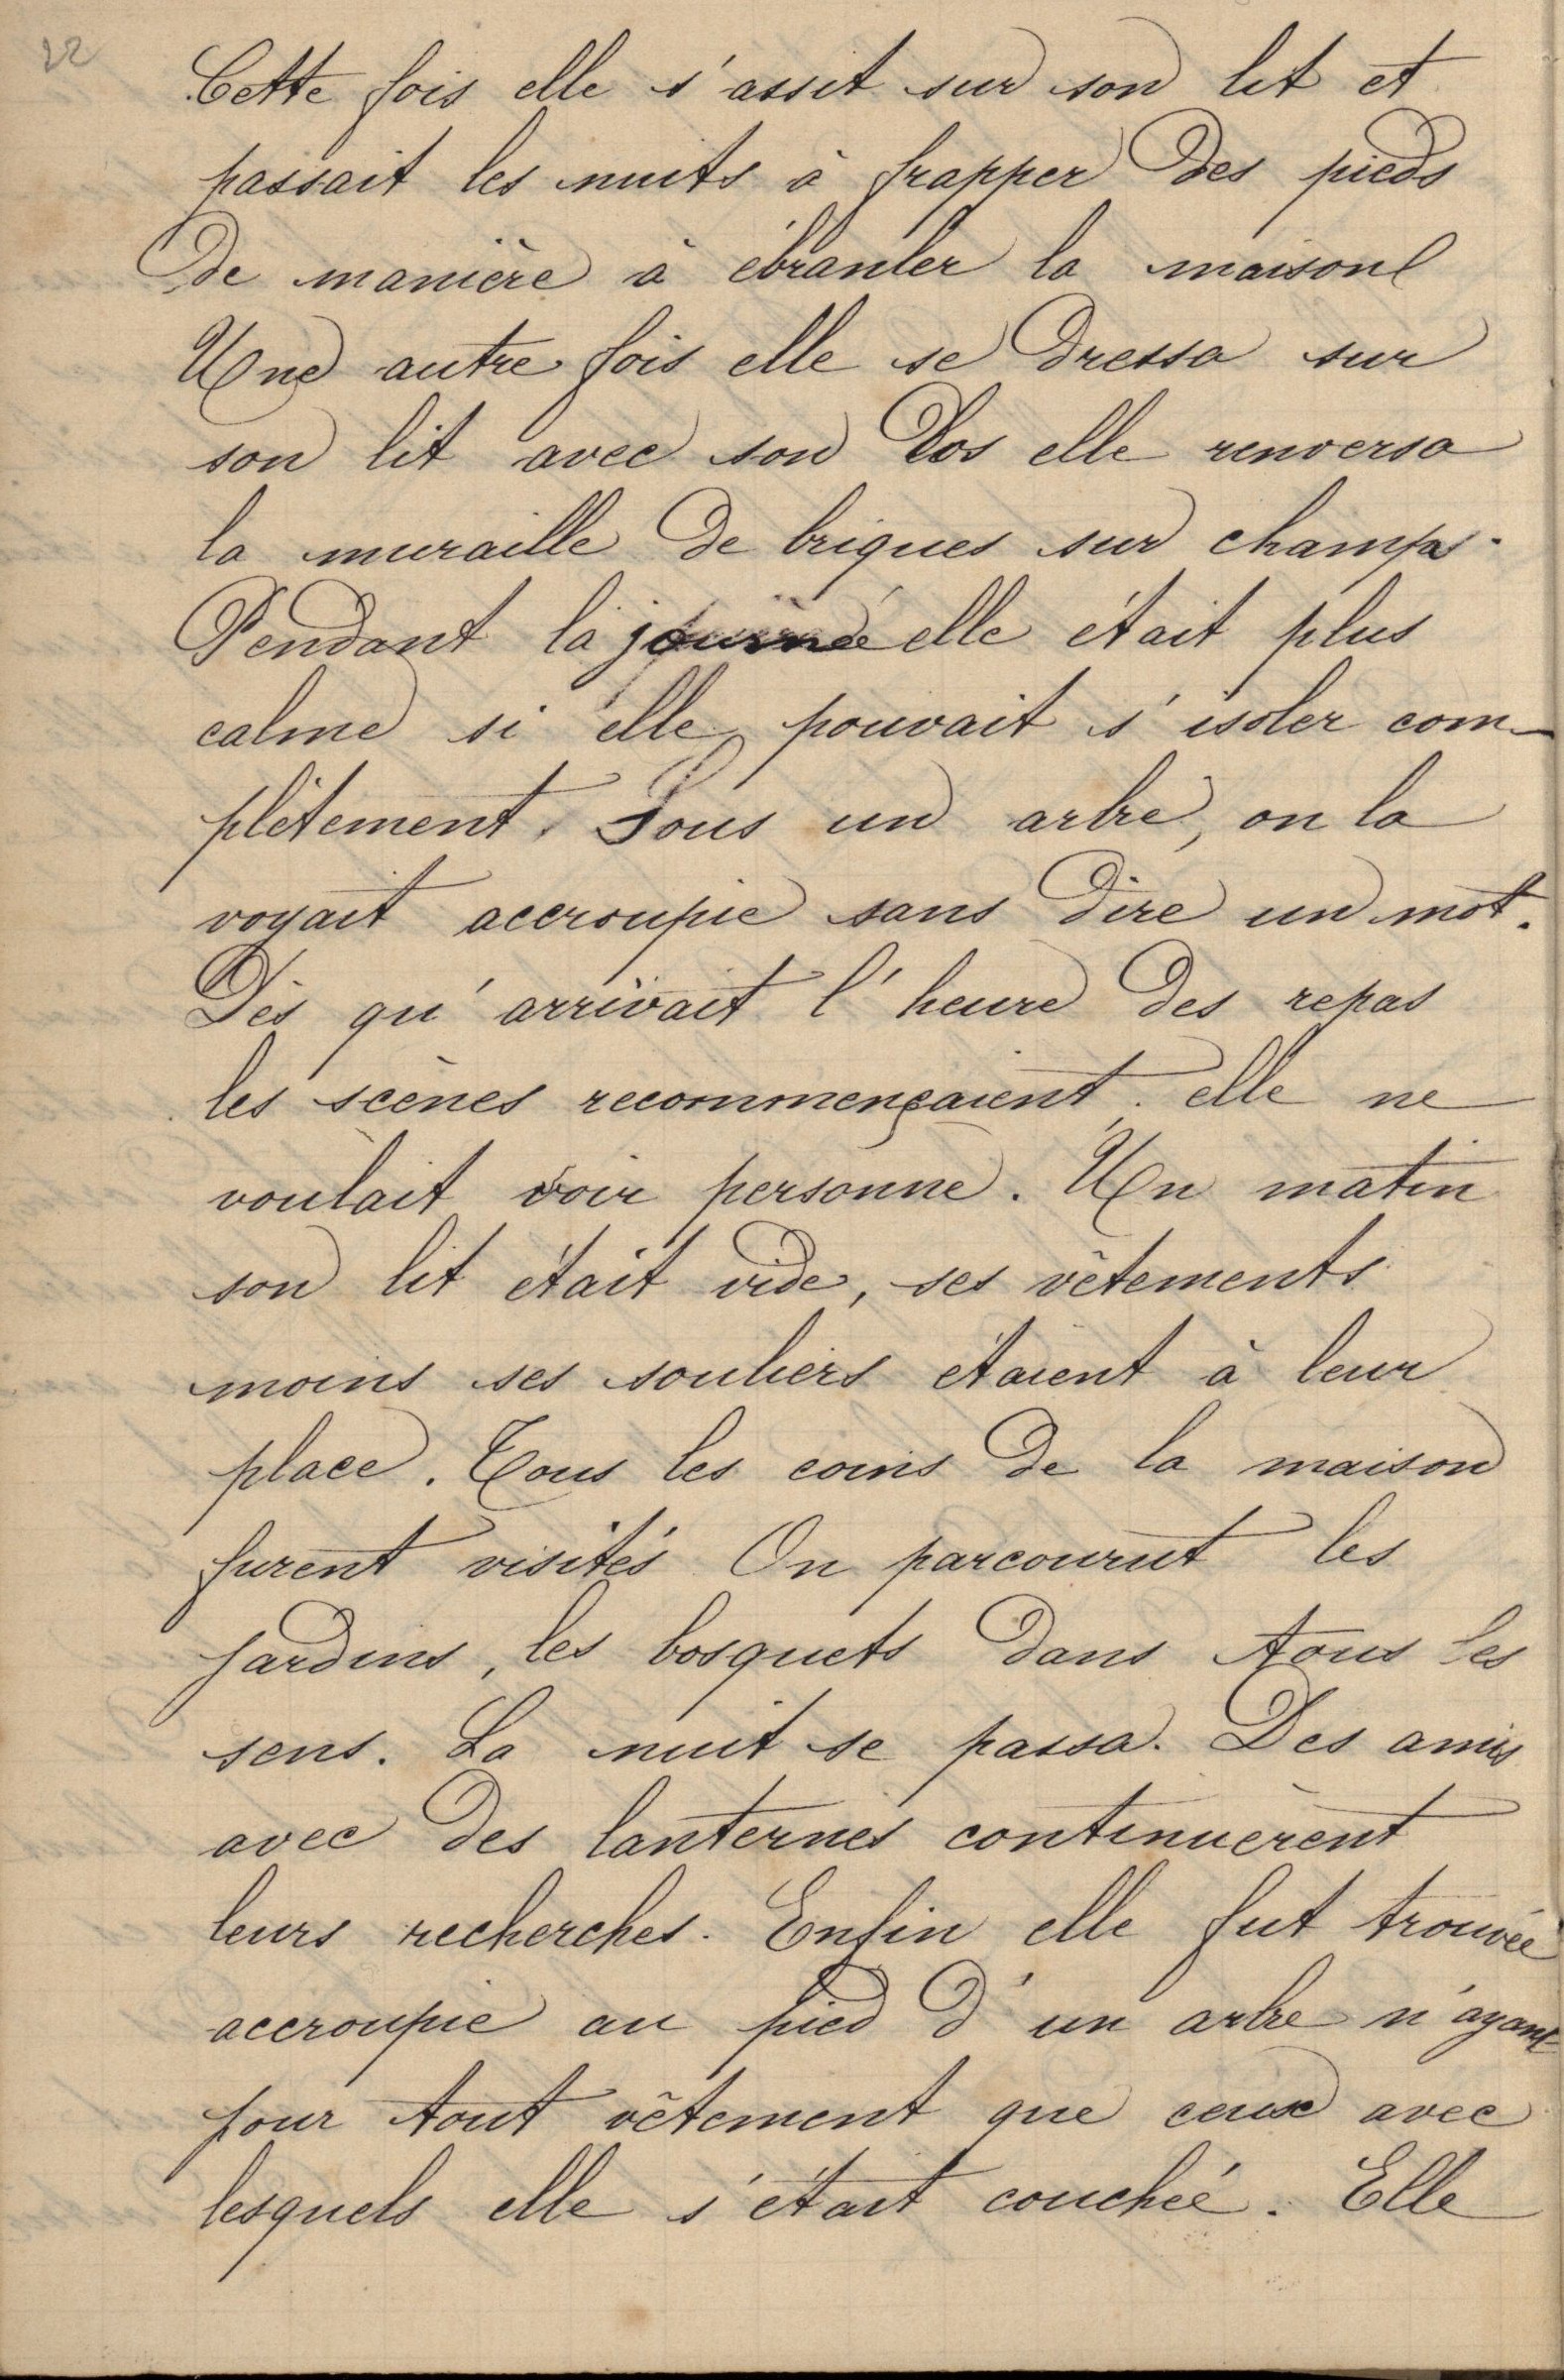 22
Cette fois elle s'assit sur son lit et
passait les nuits à frapper des pieds
de manière à ébranler la maison
Une autre fois elle se dressa sur
son lit avec son dos elle renversa
la muraille de briques sur champs.
Pendant la journée elle était plus
calme si elle pouvait s'isoler com-
plètement. Sous un arbre, on la
voyait accroupie sans dire un mot.
Dès qu'arrivait l'heure des repas
les scènes recommençaient. elle ne
voulait voir personne. Un matin
son lit était vide, ses vêtements
moins ses souliers étaient à leur
place. Tous les coins de la maison
furent visités On parcourut les
jardins, les bosquets dans tous les
sens. La nuit se passa. Des amis
avec des lanternes continuèrent
leurs recherches. Enfin elle fut trouvée
accroupie au pied d'un arbre n'ayant
pour tout vêtement que ceux avec
lesquels elle s'était couchée. Elle